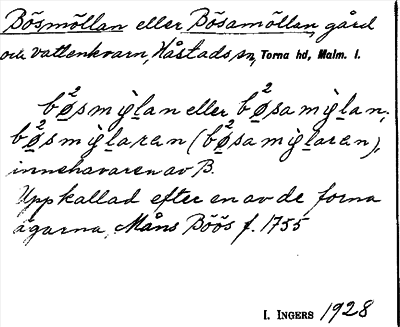 Bösmöllan eller Bösamöllan, gård
och vattenkvarn, Håstads sn, Torna hd, Malm. l.
bø²smỳlan eller bø²samỳlan;
bø²smỳlaran (bø²samỳlaran),
innehavaren av B.
Uppkallad efter en av de forna
ägarna, Måns Böös f. 1755
I. INGERS 1928